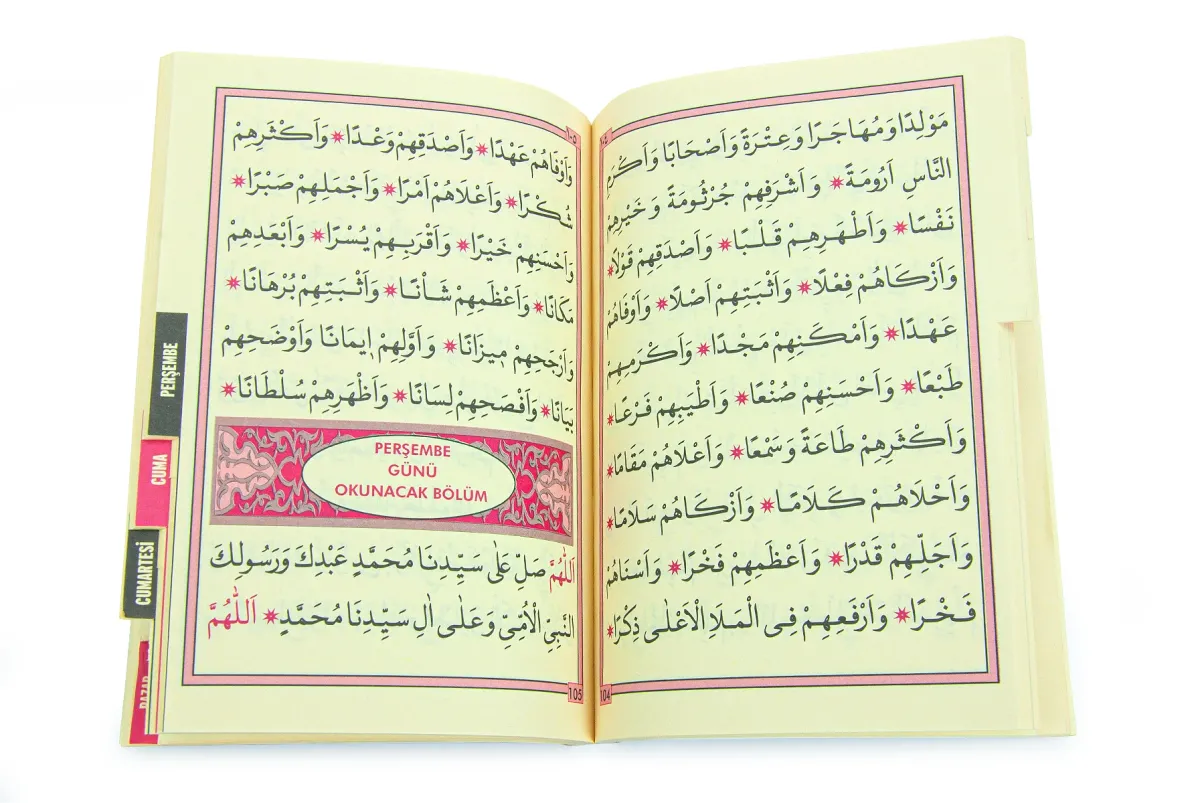 مَوْلِدًا وَمُهَاجَرًا وَعِتْرَةً وَاَصْحَابًا وَاَكْرَمِ
النَّاسِ اَرُومَةً ✷ وَاَشْرَفِهِمْ جُرْثُومَةً وَخَيْرِهِمْ
نَفْسًا ✷ وَاَطْهَرِهِمْ قَلْبًا ✷ وَاَصْدَقِهِمْ قَوْلًا ✷
وَاَزْكَاهُمْ فِعْلًا ✷ وَاَثْبَتِهِمْ اَصْلًا ✷ وَاَوْفَاهُمْ
عَهْدًا ✷ وَاَمْكَنِهِمْ مَجْدًا ✷ وَاَكْرَمِهِمْ
طَبْعًا ✷ وَاَحْسَنِهِمْ صُنْعًا ✷ وَاَطْيَبِهِمْ فَرْعًا ✷
وَاَكْثَرِهِمْ طَاعَةً وَسَمْعًا ✷ وَاَعْلَاهُمْ مَقَامًا ✷
وَاَحْلَاهُمْ كَلَامًا ✷ وَاَزْكَاهُمْ سَلَامًا ✷
وَاَجَلِّهِمْ قَدْرًا ✷ وَاَعْظَمِهِمْ فَخْرًا ✷ وَاَسْنَاهُمْ
فَخْرًا ✷ وَاَرْفَعِهِمْ فِى الْمَلَاِ الْاَعْلٰى ذِكْرًا ✷
104
١٠٥
وَاَوْفَاهُمْ عَهْدًا ✷ وَاَصْدَقِهِمْ وَعْدًا ✷ وَاَكْثَرِهِمْ
شُكْرًا ✷ وَاَعْلَاهُمْ اَمْرًا ✷ وَاَجْمَلِهِمْ صَبْرًا ✷
وَاَحْسَنِهِمْ خَيْرًا ✷ وَاَقْرَبِهِمْ يُسْرًا ✷ وَاَبْعَدِهِمْ
مَكَانًا ✷ وَاَعْظَمِهِمْ شَاْنًا ✷ وَاَثْبَتِهِمْ بُرْهَانًا ✷
وَاَرْجَحِهِمْ مِيزَانًا ✷ وَاَوَّلِهِمْ اِيمَانًا وَاَوْضَحِهِمْ
بَيَانًا ✷ وَاَفْصَحِهِمْ لِسَانًا ✷ وَاَظْهَرِهِمْ سُلْطَانًا ✷
PERŞEMBE
GÜNÜ
OKUNACAK BÖLÜM
اَللّٰهُمَّ صَلِّ عَلٰى سَيِّدِنَا مُحَمَّدٍ عَبْدِكَ وَرَسُولِكَ
النَّبِىِّ الْاُمِّىِّ وَعَلٰٓى اٰلِ سَيِّدِنَا مُحَمَّدٍ ✷ اَللّٰهُمَّ
105
PERŞEMBE
CUMA
CUMARTESİ
PAZAR